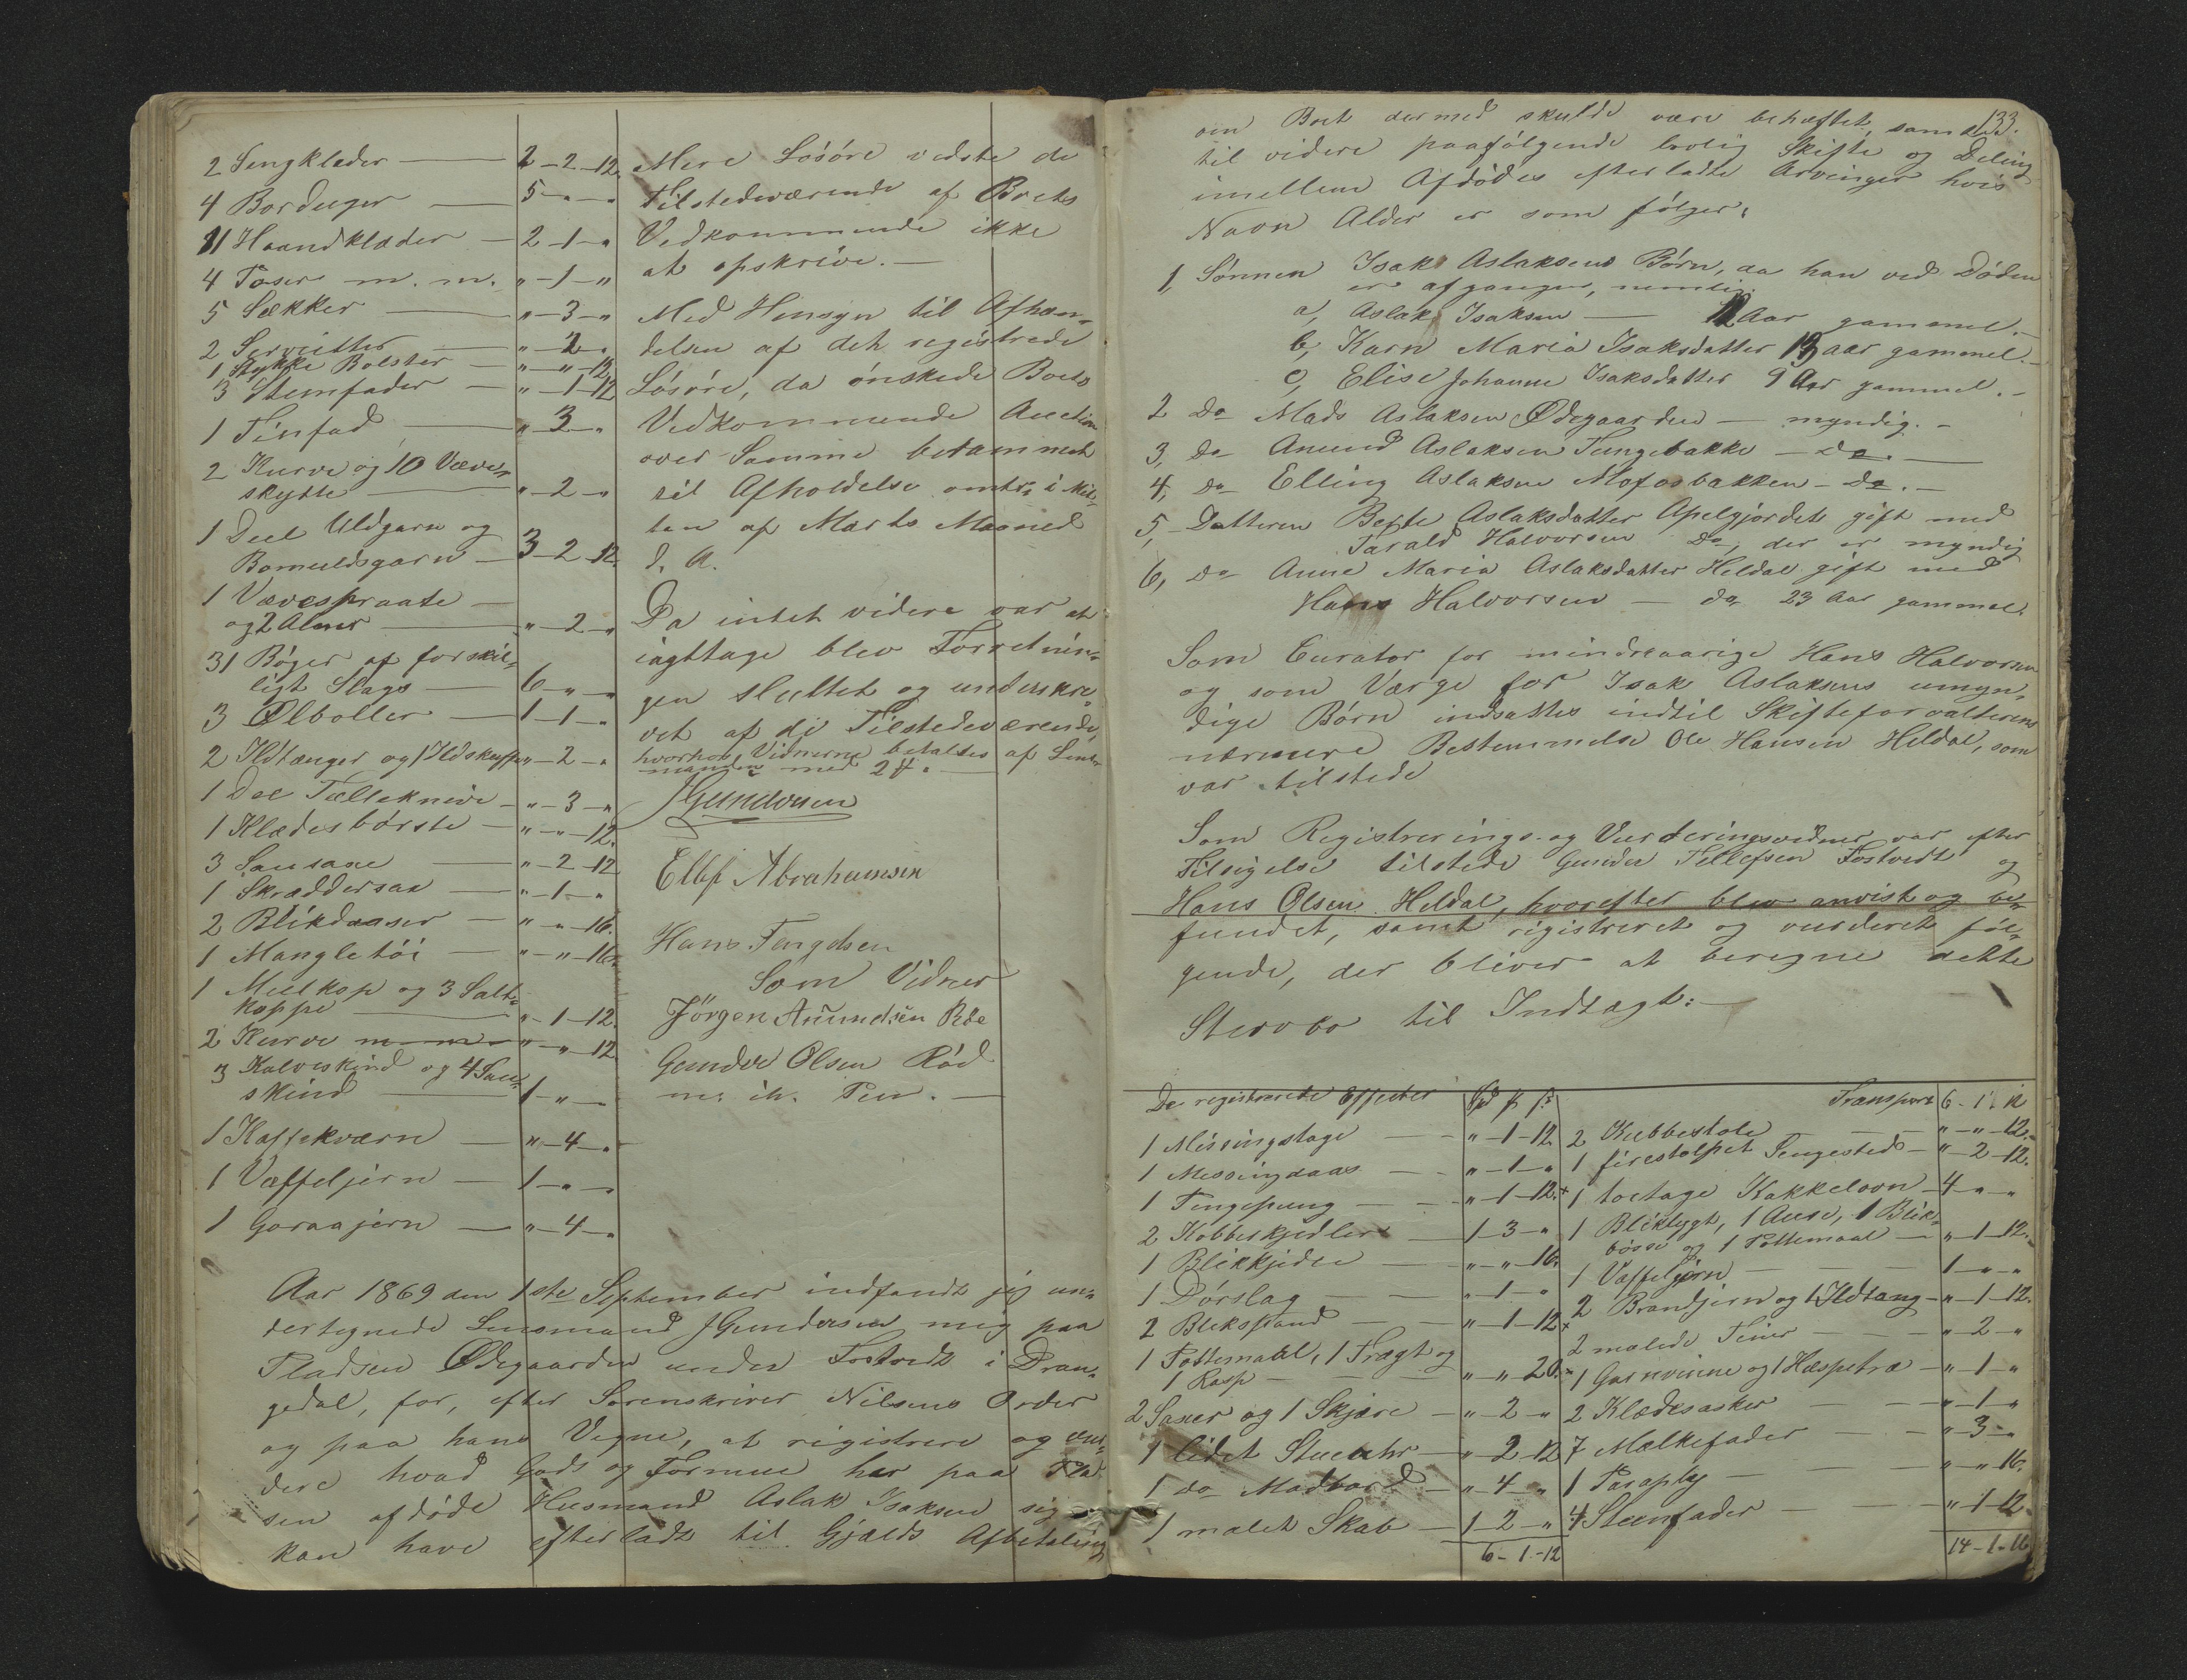 2 Sengklæder — 2-2-12.
4 Borduger — 5 - " - "
11 Haandklæder — 2-1-"
4 Poser m. m. "-1-"
5 Sække — "-3-"
2 Servietter — "-2-"
1 Stykke Bolster — "-"-12
3 Steenfade — "-1-12
1 Tinfad — "-3-"
2 Kurve og 10 Væve-
skytte — "-2-"
1 Deel Uldgarn og
Bomuldsgarn — 3-2-12.
1 Vævespraate —
og 2 Alner — "-2-"
31 Bøger af forskjel-
ligt Slags — 6-"-"
3 Ølboller — 1-1-"
2 Ildtænger og 1 Ildskuffe "-2-"
1 Deel Tælleknive — "-3-"
1 Klædesbørste — "-"-12.
3 Sausaxe — "-2-12
1 Skræddersax — "-1-"
2 Blikdaaser — "-"-16.
1 Mangletøi — "-"-16.
1 Meelkop og 3 Salt-
koppe — "-1-12.
2 Kurve m. m. "-"-12
3 Kalveskind og 4 Saue-
skind — 1-"-"
1 Kaffekværn — "-4-"
1 Vaffeljern — 1-"-"
1 Goraajern — "-4-"
Mere Løsøre vidste de
Tilstedeværende af Boets
Vedkommende ikke
at opskrive. —
Med Hensyn til Afhæn-
delsen af det registrede
Løsøre, da ønskede Boets
Vedkommende Auction
over Samme berammet
til Afholdelse omtr. i Mid-
ten af Marts Maaned
d. A.
Da intet videre var at
iagttage blev Forretnin-
gen sluttet og underskre-
vet af de Tilstedeværende,
hvorhos Vidnerne betaltes af Lens-
manden med 24 ß. —
JGundersen
Ellef Abrahamsen
Hans Tengelsen
Som Vidner
Jörgen Anundsen Röe
Gunder Olsen Röd
m. ih. Pen. —
Aar 1869 den 1ste September indfandt jeg un-
dertegnede Lensmand JGundersen mig paa
Pladsen Ødegaarden under Tostvedt i Dran-
gedal, for, efter Sorenskriver Nilsens Order
og paa hans Vegne, at registrere og vur-
dere hvad Gods og Formue her paa Plad-
sen afdøde Husmand Aslak Isaksen sig
kan have efterladt til Gjælds Afbetaling
133.
om Boet dermed skulde være behæftet, samt
til videre paafølgende lovlig Skifte og Deling
imellem Afdødes efterladte Arvinger hvis
Navn Alder er som følger:
1, Sønnen Isak Aslaksens Børn, da han ved Døden
er afgangen, nemlig:
a, Aslak Isaksen — 12 Aar gammel. —
b, Karn Maria Isaksdatter 13 aar gammel. —
c, Elise Johanne Isaksdatter 9 Aar gammel. —
2 do Mads Aslaksen Ødegaarden — myndig. —
3, do Anund Aslaksen Tungebakke — do. —
4, do Elling Aslaksen Mofosbakken — do. —
5, Datteren Berte Aslaksdatter Apelgjordet gift med
Tarald Halvorsen do, der er myndig
6, do Anne Maria Aslaksdatter Heldal gift med
Hans Halvorsen — do 23 Aar gammel.
Som Curator for mindreaarige Hans Halvorsen
og som Værge for Isak Aslaksens umyn-
dige Børn indsattes indtil Skifteforvalterens
nærmere Bestemmelse Ole Hansen Heldal, som
var tilstede
Som Registrerings- og Vurderingsvidner var efter
Tilsigelse tilstede Gunder Tellefsen Tostvedt og
Hans Olsen Heldal, hvorefter blev anvist og be-
fundet, samt registreret og vurderet føl-
gende, der bliver at beregne dette
Stervbo til Indtægt: —
De registrerede Effecter Spd # ß
1 Missingstage — "-1-12
1 Messingdaas — "-1-"
1 Pengepung — "-1-12.
2 Kobberkjedler — 1-3-"
1 Blikkjedel — "-"-16.
1 Dørslag — "-1-"
2 Blikspand — "-1-12
1 Pottemaal, 1 Tragt og
1 Rasp — "-"-20.
2 Saxer og 1 Skjære — "-2-"
1 lidet Stueuhr — "-2-12
1 do Madbord — "-4-"
1 malet Skab — 1-2-"
6-1-12
Transport 6-1-12
2 Kubbestole — "-"-12.
1 firestolpet Sengested — "-2-12.
1 toetage Kakkelovn — 4-"-"
1 Bliklygt, 1 Ause, 1 Blik-
bøsse og 1 Pottemaal — "-1-12.
1 Vaffeljern — 1-"-"
2 Brandjern og 1 Ildtang — "-1-12.
2 malede Tiner — "-2-"
1 Garnvinne og 1 Hæspetræ — "-1-"
2 Klædesasker — "-1-"
7 Melkefader — "-3-"
1 Paraply — "-"-16.
4 Steenfader — "-1-12
14-1-16